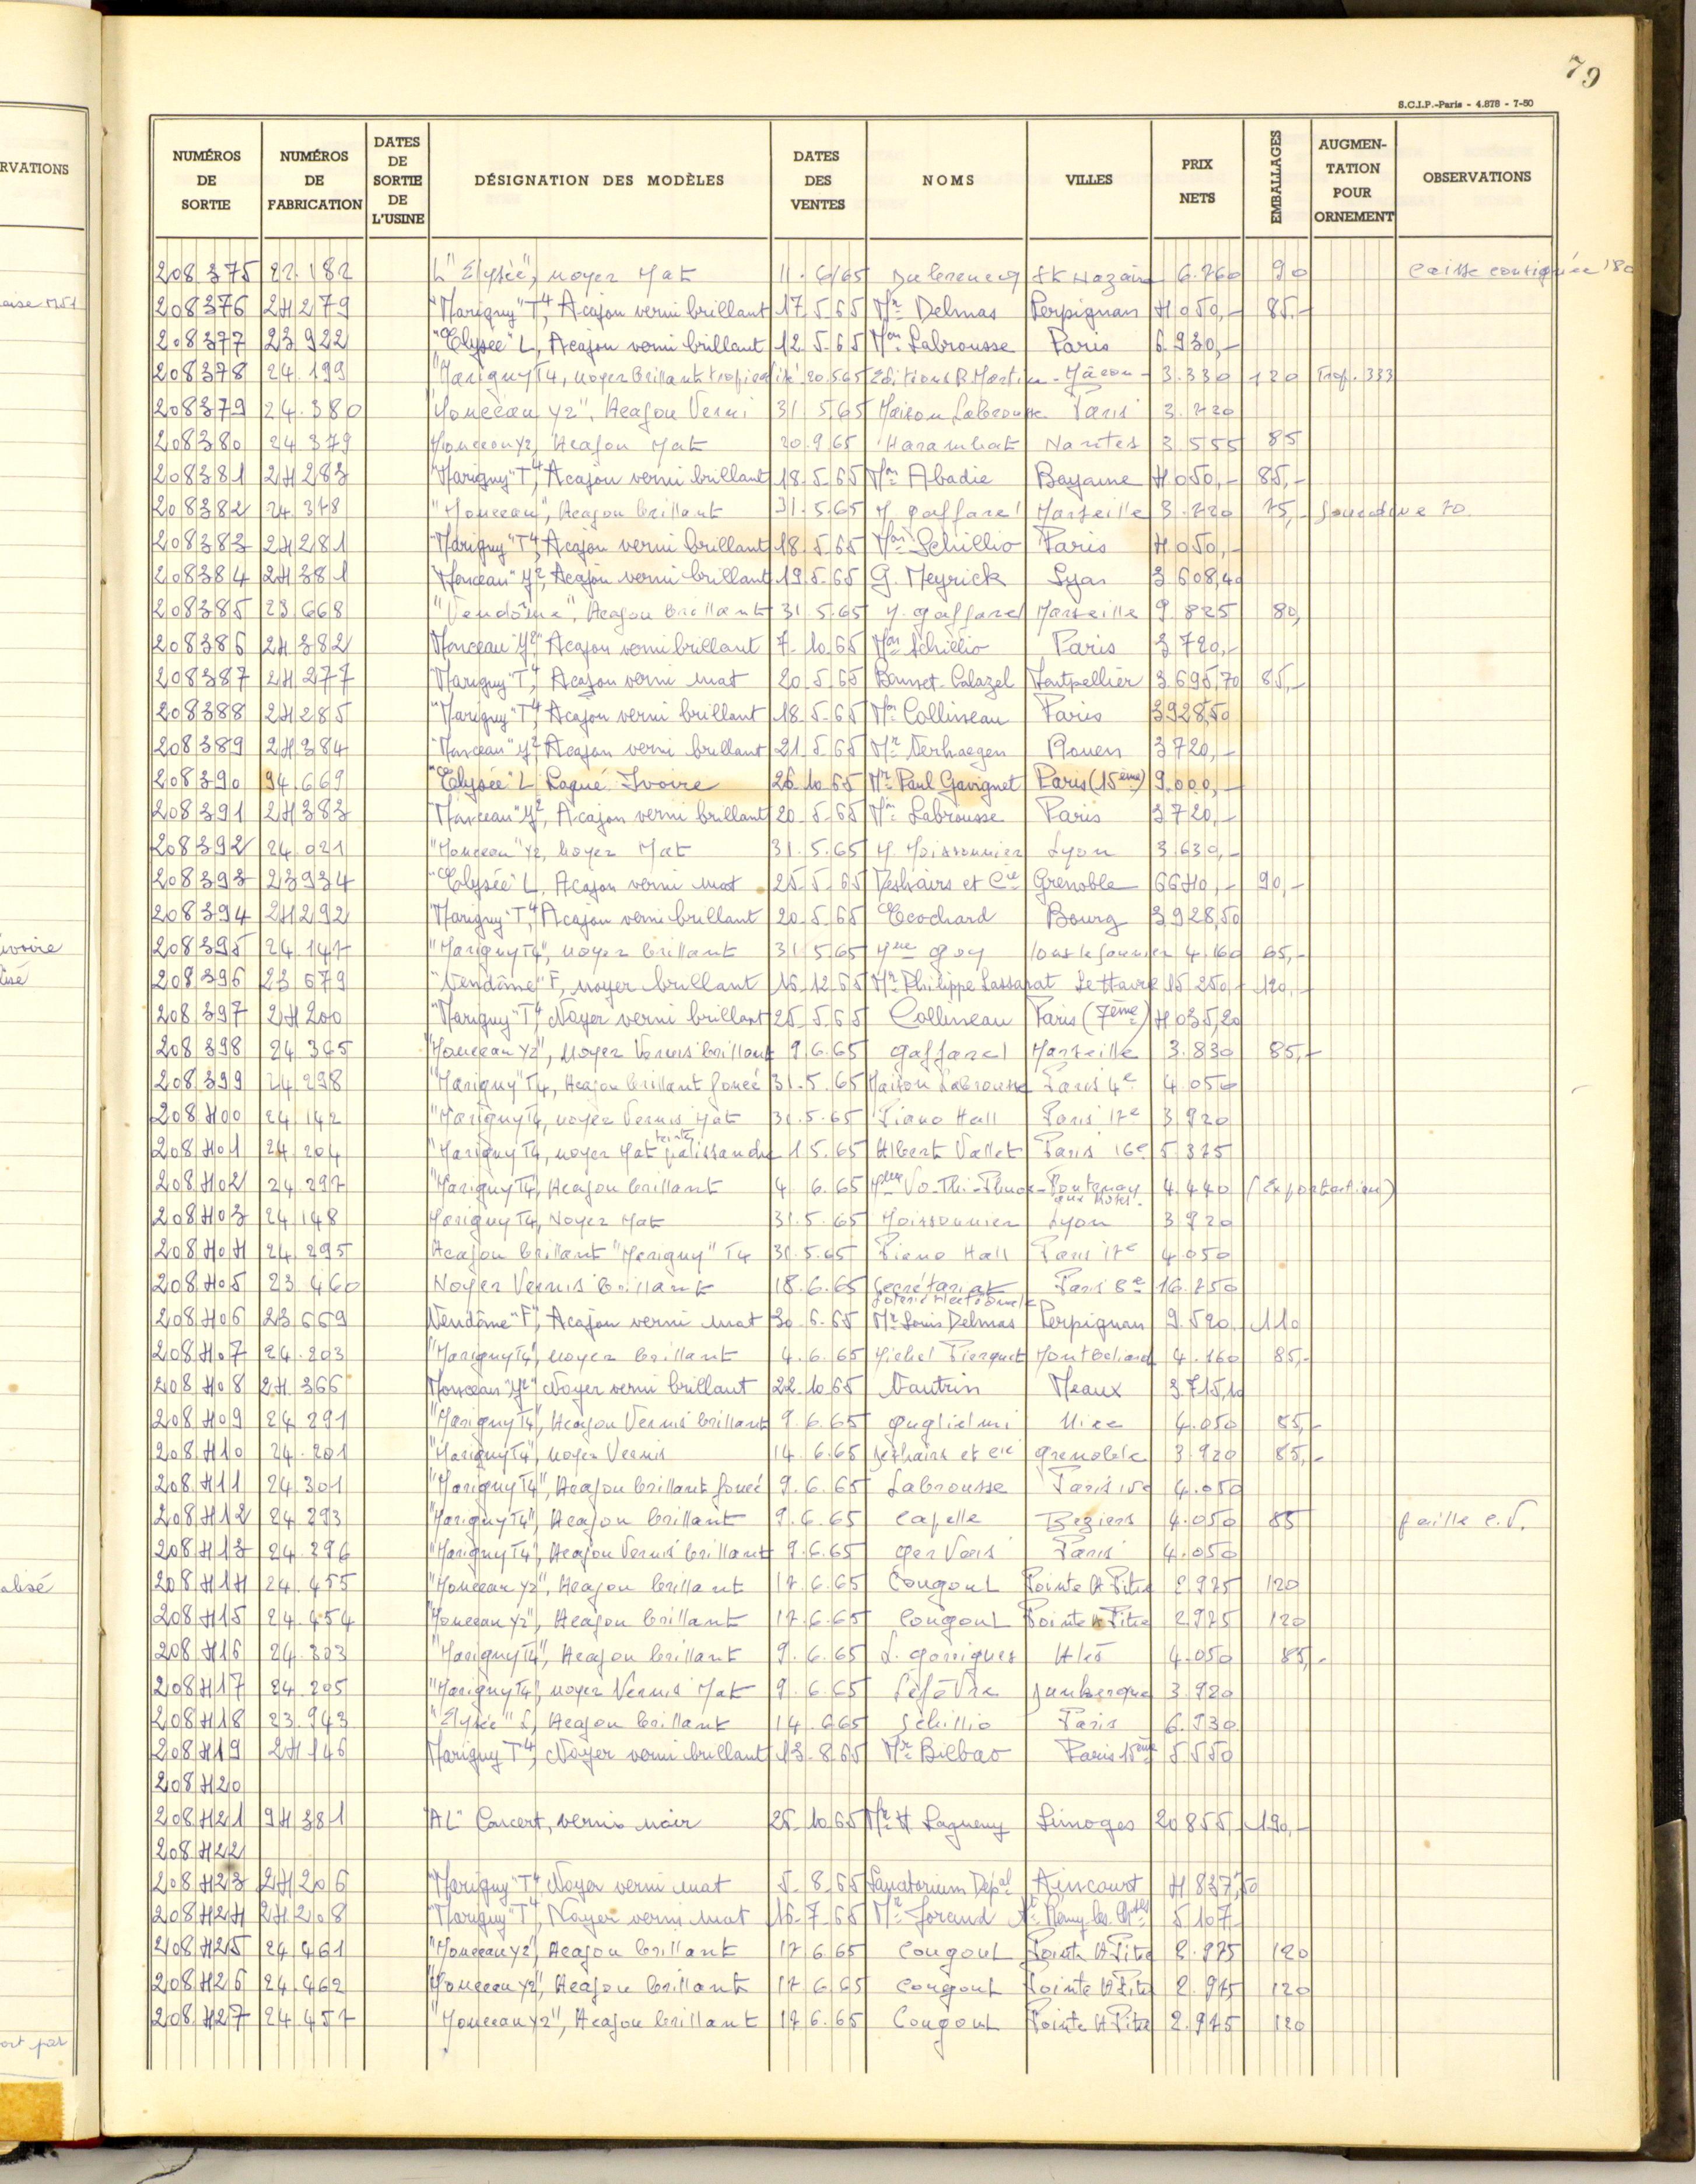 79
S.C.I.P.-Paris - 4.878 - 7-50
RVATIONS
NUMÉROS DE SORTIE | NUMÉROS DE FABRICATION | DATES DE SORTIE DE L'USINE | DÉSIGNATION DES MODÈLES | DATES DES VENTES | NOMS | VILLES | PRIX NETS | EMBALLAGES | AUGMENTATION POUR ORNEMENT | OBSERVATIONS
208375 22.182 L "Elysée", noyer Mat 11.6/65 St Nazaire 6.760 90 Caisse consignée 180
208376 24279 "Marigny" T4, Acajou verni brillant 17.5.65 Mr Delmas Perpignan 4.050,- 85.-
208377 23922 "Elysée" L, Acajou verni brillant 12.5.65 Mon Labrousse Paris 6.930,-
208378 24.199 "Marigny T4, noyer Brillant tropicalisé 20.5.65 Editions R. Martin - Mâcon - 3.330 120 Trop. 333
208379 24.380 "Monceau Y2", Acajou Verni 31.5.65 Maison Labrousse Paris 3.720
208380 24379 Monceau Y2, Acajou Mat 20.9.65 Harambat Nantes 3.555 85
208381 24283 "Marigny" T4, Acajou verni brillant 18.5.65 Mon Abadie Bayonne 4.050,- 85,-
208382 24.378 "Monceau", Acajou brillant 31.5.65 M. Gaffarel Marseille 3.720 75,- 70
208383 24281 "Marigny" T4, Acajou verni brillant 18.5.65 Mon Schillio Paris 4.050,-
208384 24381 "Monceau" Y2, Acajou verni brillant 19.5.65 G. Meyrick Lyon 3608,40
208385 23.668 "Vendôme", Acajou Brillant 31.5.65 M. Gaffarel Marseille 9.825 80,
208386 24382 Monceau "Y2" Acajou verni brillant 7.10.65 Mon Schillio Paris 3720,-
208387 24277 "Marigny" T4, Acajou verni mat 20.5.65 Bonnet-Calazel Montpellier 3.695,70 85,-
208388 24285 "Marigny" T4, Acajou verni brillant 18.5.65 Mon Collineau Paris 3928,50
208389 24384 "Monceau" Y2, Acajou verni brillant 21.5.65 Mr Verhaegen Rouen 3720,-
208390 94.669 "Elysée" L Laqué Ivoire 26.10.65 Mr Paul Gavignet Paris (15ème) 9.000,-
208391 24383 "Monceau" Y2, Acajou verni brillant 20.5.65 Mon Labrousse Paris 3720,-
208392 24.021 "Monceau" Y2, noyer Mat 31.5.65 M. Moissonnier Lyon 3.630,-
208393 23934 "Elysée" L, Acajou verni mat 25.5.65 Deshairs et Cie Grenoble 6640,- 90,-
208394 24292 "Marigny" T4, Acajou verni brillant 20.5.65 Ecochard Bourg 3.928,50
208395 24.147 "Marigny T4", noyer brillant 31.5.65 Goy Lons le Saunier 4.160 65,-
208396 23679 "Vendôme" F, noyer brillant 16.12.65 Mr Philippe Lassarat Le Havre 15.250,- 120,-
208397 24200 "Marigny" T4, Noyer verni brillant 25.5.65 Collineau Paris (7ème) 4.035,20
208398 24.365 "Monceau Y2", Noyer Vernis brillant 9.6.65 Gaffarel Marseille 3.830 85,-
208399 24.298 "Marigny" T4, Acajou brillant foncé 31.5.65 Maison Labrousse Paris 4e 4.050
208400 24.142 "Marigny T4, noyer Vernis Mat 31.5.65 Piano Hall Paris 17e 3.920
208401 24.204 "Marigny T4, noyer Mat teinté palissandre 1.5.65 Albert Vallet Paris 16e 5.375
208402 24.297 "Marigny T4, Acajou brillant 4.6.65 Vo-Thi-Fontenay aux Roses. 4.440 (Exportation)
208403 24.148 Marigny T4, Noyer Mat 31.5.65 Moissonnier Lyon 3.920
208404 24.295 Acajou brillant "Marigny" T4 31.5.65 Piano Hall Paris 17e 4.050
208405 23.460 Noyer Vernis brillant 18.6.65 Secrétariat Loterie Nationale Paris 8e 16.750
208406 23669 Vendôme "F", Acajou verni mat 30.6.65 Mr Louis Delmas Perpignan 9.520 110
208407 24.203 "Marigny T4", noyer brillant 4.6.65 Michel Pierquet Montbeliard 4.160 85,-
208408 24.366 Monceau "Y2", Noyer verni brillant 22.10.65 Vautrin Meaux 3.715,10
208409 24.291 "Marigny T4", Acajou Vernis brillant 9.6.65 Guglielmi Nice 4.050 85,-
208410 24.201 "Marigny T4", noyer Vernis 14.6.65 Deshairs et Cie Grenoble 3.920 85,-
208411 24.301 "Marigny T4", Acajou brillant foncé 9.6.65 Labrousse Paris 4.050
208412 24.293 "Marigny T4", Acajou brillant 9.6.65 Capelle Beziers 4.050 85 paille C.V.
208413 24.296 "Marigny T4", Acajou Vernis brillant 9.6.65 Gervais Paris 4.050
208414 24.455 "Monceau Y2", Acajou brillant 17.6.65 Cougoul Pointe A Pitre 2.975 120
208415 24.454 "Monceau Y2", Acajou brillant 17.6.65 Cougoul Pointe A Pitre 2.975 120
208416 24.303 "Marigny T4", Acajou brillant 9.6.65 L. Garrigues Alès 4.050 85,-
208417 24.205 "Marigny T4", noyer Vernis Mat 9.6.65 Lefèvre Dunkerque 3.920
208418 23.943 "Elysée" L, Acajou brillant 14.6.65 Schillio Paris 6.930
208419 24146 Marigny T4, Noyer verni brillant 13.8.65 Mr Bilbao Paris 15ème 5.550
208420
208421 94381 "AL" Concert, vernis noir 25.10.65 Mr H Lagueny Limoges 20855,- 190,-
208422
208423 24206 "Marigny" T4, Noyer verni mat 5.8.65 Sanatorium Dépal Aincourt 4.837,50
208424 24208 "Marigny" T4, Noyer verni mat 16.7.65 Mr Forand St Rémy les 5107
208425 24461 "Monceau Y2", Acajou brillant 17.6.65 Cougoul Pointe A Pitre 2.975 120
208426 24.462 "Monceau Y2", Acajou brillant 17.6.65 Cougoul Pointe A Pitre 2.975 120
208427 24.457 "Monceau Y2", Acajou brillant 17.6.65 Cougoul Pointe A Pitre 2.975 120
ivoire
alisé